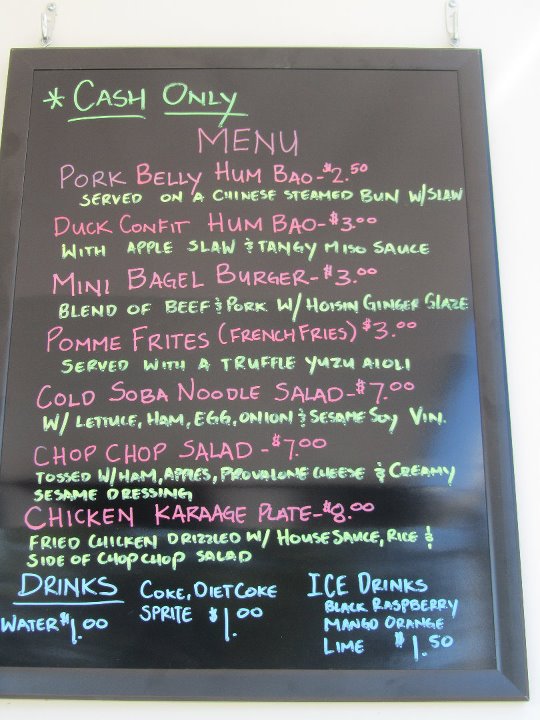 * Cash Only
MENU
PORK BELLY HUM BAO-$2.50
SERVED ON A CHINESE STEAMED BUN W/SLAW
DUCK CONFIT HUM BAO-$3.00
WITH APPLE SLAW & TANGY MISO SAUCE
MINI BAGEL BURGER-$3.00
BLEND OF BEEF & PORK W/ HOISIN GINGER GLAZE
POMME FRITES (FRENCH FRIES) $3.00
SERVED WITH A TRUFFLE YUZU AIOLI
COLD SOBA NOODLE SALAD-$7.00
W/ LETTUCE, HAM, EGG, ONION & SESAME SOY VIN.
CHOP CHOP SALAD -$7.00
TOSSED W/HAM, APPLES, PROVALONE CHEESE & CREAMY
SESAME DRESSING
CHICKEN KARAAGE PLATE-$8.00
FRIED CHICKEN DRIZZLED W/ HOUSE SAUCE, RICE &
SIDE OF CHOP CHOP SALAD
DRINKS
WATER $1.00
COKE, DIET COKE
SPRITE $1.00
ICE DRINKS
BLACK RASPBERRY
MANGO ORANGE
LIME $1.50